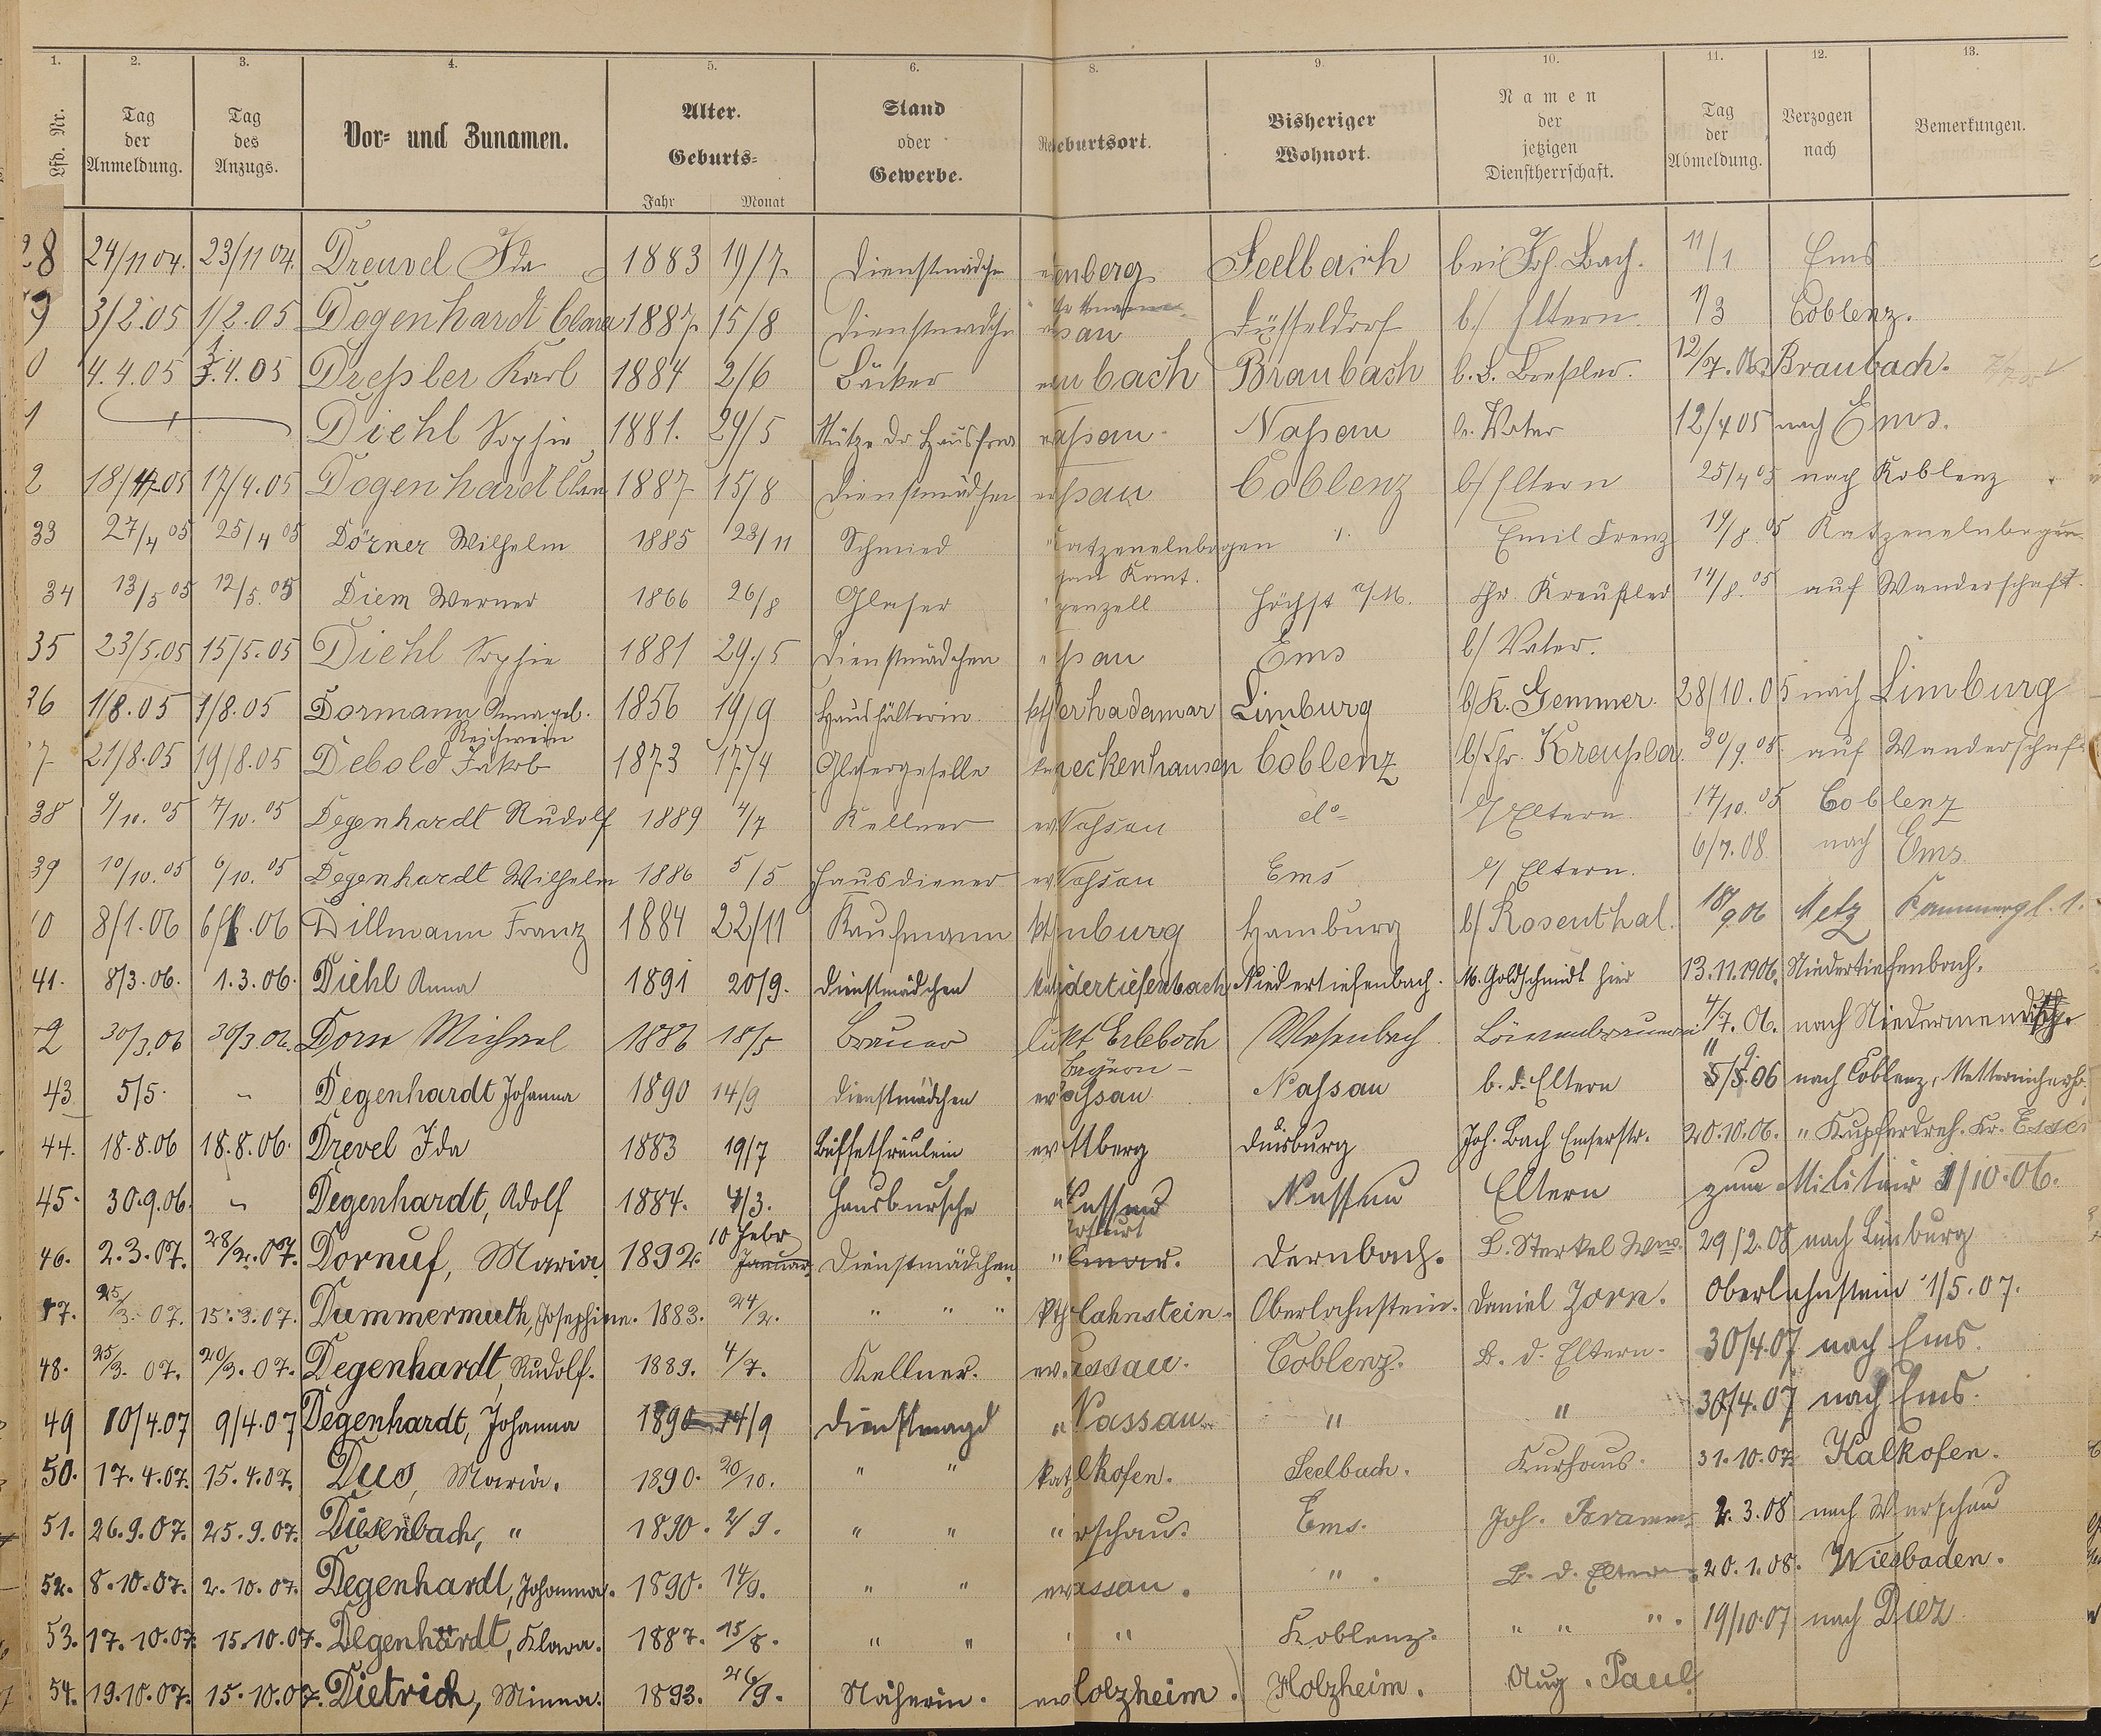 1. 2. 3. 4. 5. 6. 8. 9. 10. 11. 12. 13.
Lfd. Nr. Tag der Anmeldung. Tag des Anzugs. Vor- und Zunamen. Alter. Geburts- Jahr Monat Stand oder Gewerbe. Geburtsort. Bisheriger Wohnort. Namen der jetzigen Dienstherrschaft. Tag der Abmeldung. Verzogen nach Bemerkungen.
28 24/11 04. 23/11 04. Dreuvel Ida 1883 19/7. Dienstmädche enberg Seelbach bei Joh. Bach. 11/1 Ems
9 3/2.05 1/2.05 Degenhardt Clara 1887. 15/8 Dienstmädche sau Düsseldorf b/ Eltern. 1/3 Coblenz.
0 4.4.05 3.4.05 Dreßler Karl 1884 2/6 Bäcker ubach Braubach b. L. Dreßler. 12/7. 05. Braubach.
1 Diehl Sophie 1881. 29/5 Stütze der Hausfrau aßau Naßau b. Vater 12/4 05 nach Ems.
2 18/4 05 17/4.05 Degenhardt Clara 1887 15/8 Dienstmädchen ßau Coblenz b/ Eltern 25/4 05 nach Koblenz
33 27/4 05 25/4 05 Dörner Wilhelm 1885 23/11 Schmied Katzenelnbogen Emil Krenz 19/8. 05 Katzenelnbogen
34 13/5 05 12/5. 05 Diem Werner 1866 26/8 Glaser Kant. penzell Höchst a/M. Chr. Kreußler 14/8. 05 auf Wanderschaft.
35 23/5.05 15/5.05 Diehl Sophie 1881 29./5 Dienstmädchen ßau Ems b/ Vater.
36 1/8.05 1/8.05 Dormann Anna geb. Reichwein 1856 19/9 Haushälterin kth erhadamar Limburg b/ K. Gemmer. 28/10.05 nach Limburg
7 21/8.05 19/8.05 Debold Jakob 1873 17./4 Glasergeselle eckenhausen Coblenz b/ Chr. Kreußler. 30/9. 05. auf Wanderschaft
38 9/10. 05 7/10. 05 Degenhardt Rudolf 1889 4/7 Kellner ev Naßau do b/ Eltern. 17/10. 05 Coblenz
39 10/10. 05 6/10. 05 Degenhardt Wilhelm 1886 5/5 Hausdiener ev. Naßau Ems b/ Eltern. 6/7.08 nach Ems
0 8/1.06 6/1.06 Dillmann Franz 1884 22/11 Kaufmann kth nburg Hamburg b/ Rosenthal. 18/9 06 Metz Kammergl. 1.
41. 8/3.06. 1.3.06. Diehl Anna 1891 20/9. Dienstmädchen kath dertiefenbach Niedertiefenbach. M. Goldschmidt hier 13.11.1906. Niedertiefenbach.
2 30/3.06 30/3.06. Dorn Michael 1886 18/5 Brauer Erlebach Bayern Löwenbrauerei 4/7. 06. nach Niedermendig
43 5/5. " Degenhardt Johanna 1890 14/9 Dienstmädchen ev aßau Naßau b. d. Eltern 06 nach Coblenz,
44. 18.8.06 18.8.06. Drevel Ida 1883 19/7 Büffetfräulein ev ttberg Duisburg Joh. Bach Emserstr. 20.10.06. " Kupferdreh. Kr. Essen
45. 30.9.06. " Degenhardt, Adolf 1884. 4/3. Hausbursche " Nassau Nassau Eltern zum Militair 1/10.06.
46. 2.3.07. 28/2.07. Dornuf, Maria. 1892. 10 Febr Januar. Dienstmädchen. " Dernbach. B. Sterkel Wwe. 29/2.08 nach Limburg
47. 25/3. 07. 15.3.07. Dummermuth, Josephine. 1883. 24/2. " " " kth lahnstein. Oberlahnstein. Daniel Zorn. Oberlahnstein 1/5.07.
48. 25/3. 07. 20/3.07. Degenhardt, Rudolf. 1889. 4/7. Kellner. ev. assau. Coblenz. B. d. Eltern. 30/4.07 nach Ems.
49 10/4.07 9/4.07 Degenhardt, Johanna 1890 14/9 Dienstmagd " Nassau. " " 30/4.07 nach Ems.
50. 17.4.07. 15.4.07. Duo, Maria. 1890. 20/10. " " kat lkofen. Seelbach. Kurhaus. 31.10.07. Kalkofen.
51. 26.9.07. 25.9.07. Diesenbach, " 1890. 2/9. " " " rschau. Ems. Joh. Bramm. 2.3.08 nach Warschau
52. 8.10.07. 2.10.07. Degenhardt, Johanna. 1890. 14/9. " " ev assau. " . B. d. Eltern. 20.1.08. Wiesbaden.
53. 17.10.07. 15.10.07. Degenhardt, Klara. 1887. 15/8. " " " " Koblenz. " " " . 19/10.07 nach Diez
54. 19.10.07. 15.10.07. Dietrich, Minna. 1893. 26/9. Näherin. ev olzheim. Holzheim. Aug. Paul